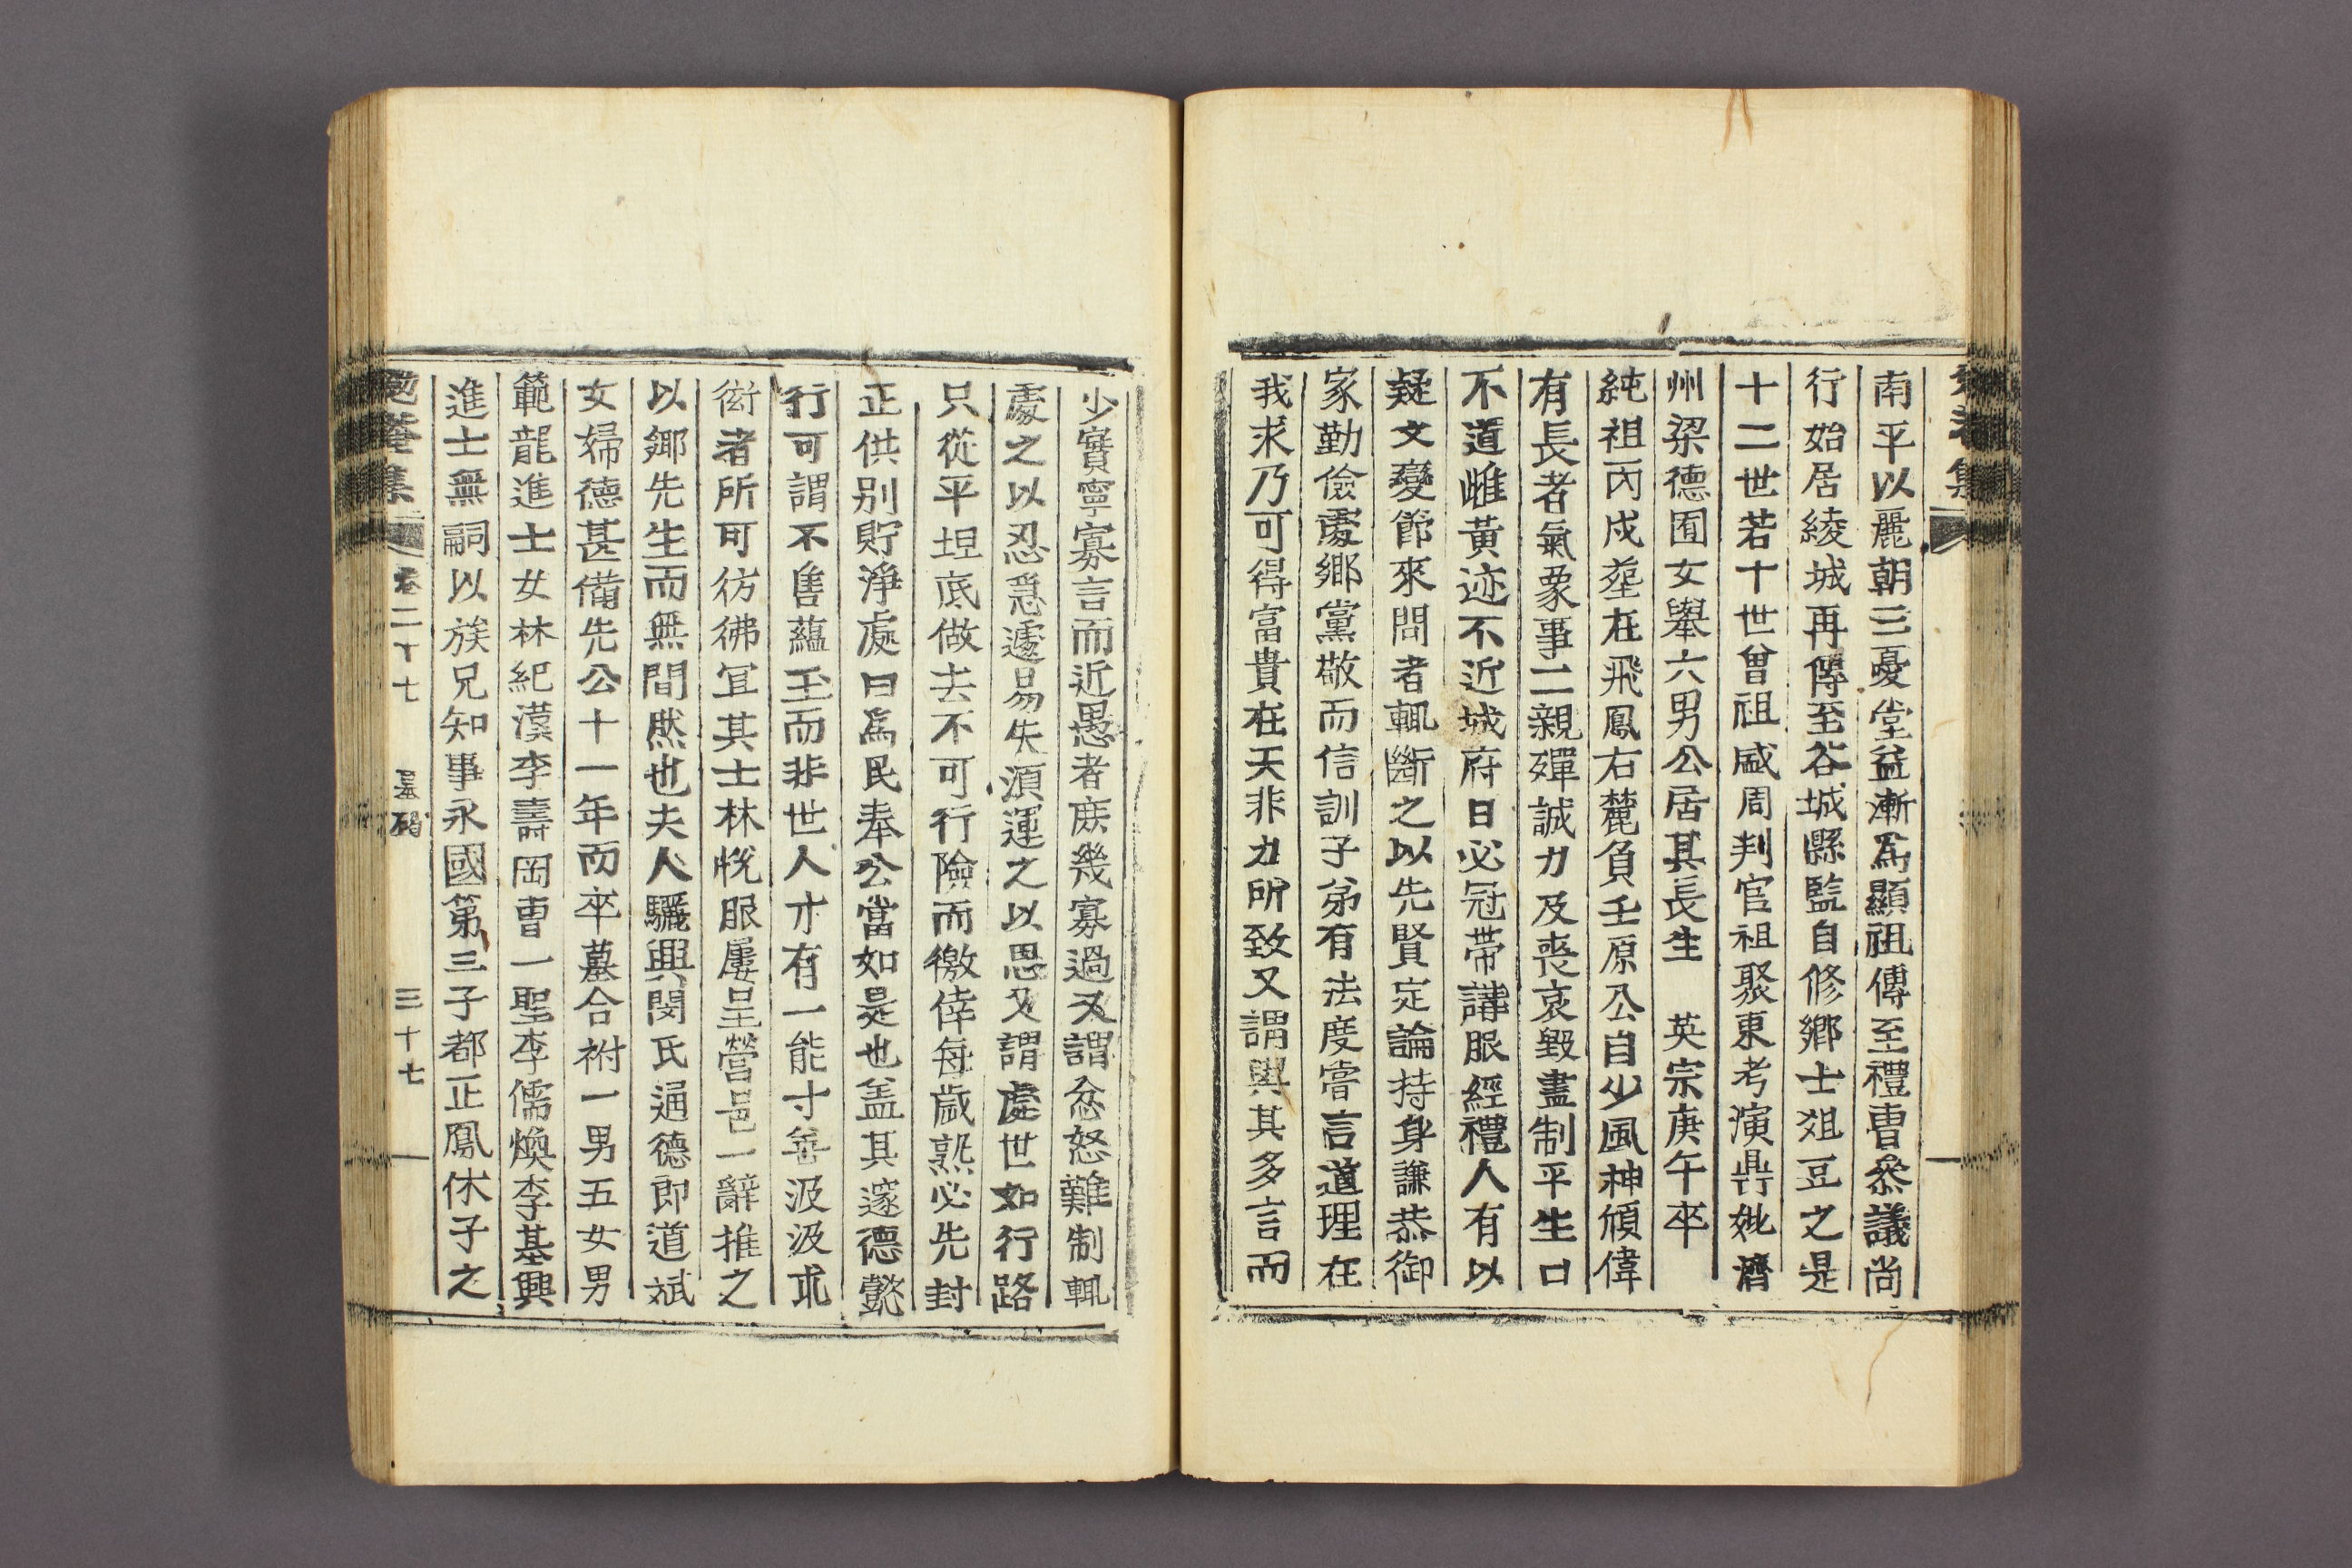 南平以麗朝三憂堂益漸爲顯祖傳至禮曺叅議尙
行始居綾城再傳至谷城縣監自修鄕士俎豆之是
十二世若十世曾祖碱周判官祖聚東考演鼎妣濟
州梁德囿女擧六男公居其長生　英宗庚午卒
純祖丙戌塟在飛鳳右麓負壬原公自少風神頎偉
有長者氣象事二親殫誠力及喪哀毁盡制平生口
不道雌黃迹不近城府日必冠帶講服經禮人有以
疑文變節來問者輒斷之以先賢定論持身謙恭御
家勤儉處鄕黨敬而信訓子弟有法度甞言道理在
我求乃可得富貴在天非力所致又謂與其多言而
少實寧寡言而近愚者庶幾寡過又謂忿怒難制輒
處之以忍急遽易失須運之以思又謂處世如行路
只從平坦底做去不可行險而徼倖每歲熟必先封
正供别貯淨處曰爲民奉公當如是也盖其邃德懿
行可謂不售蘊玉而非世人才有一能寸善汲汲求
衒者所可彷彿宜其士林悅服屢呈營邑一辭推之
以鄕先生而無間然也夫人驪興閔氏通德郎道斌
女婦德甚備先公十一年而卒墓合祔一男五女男
範龍進士女林紀漢李壽岡曺一聖李儒煥李基興
進士無嗣以族兄知事永國第三子都正鳳休子之
勉菴集
卷二十七
墓碣
三十七